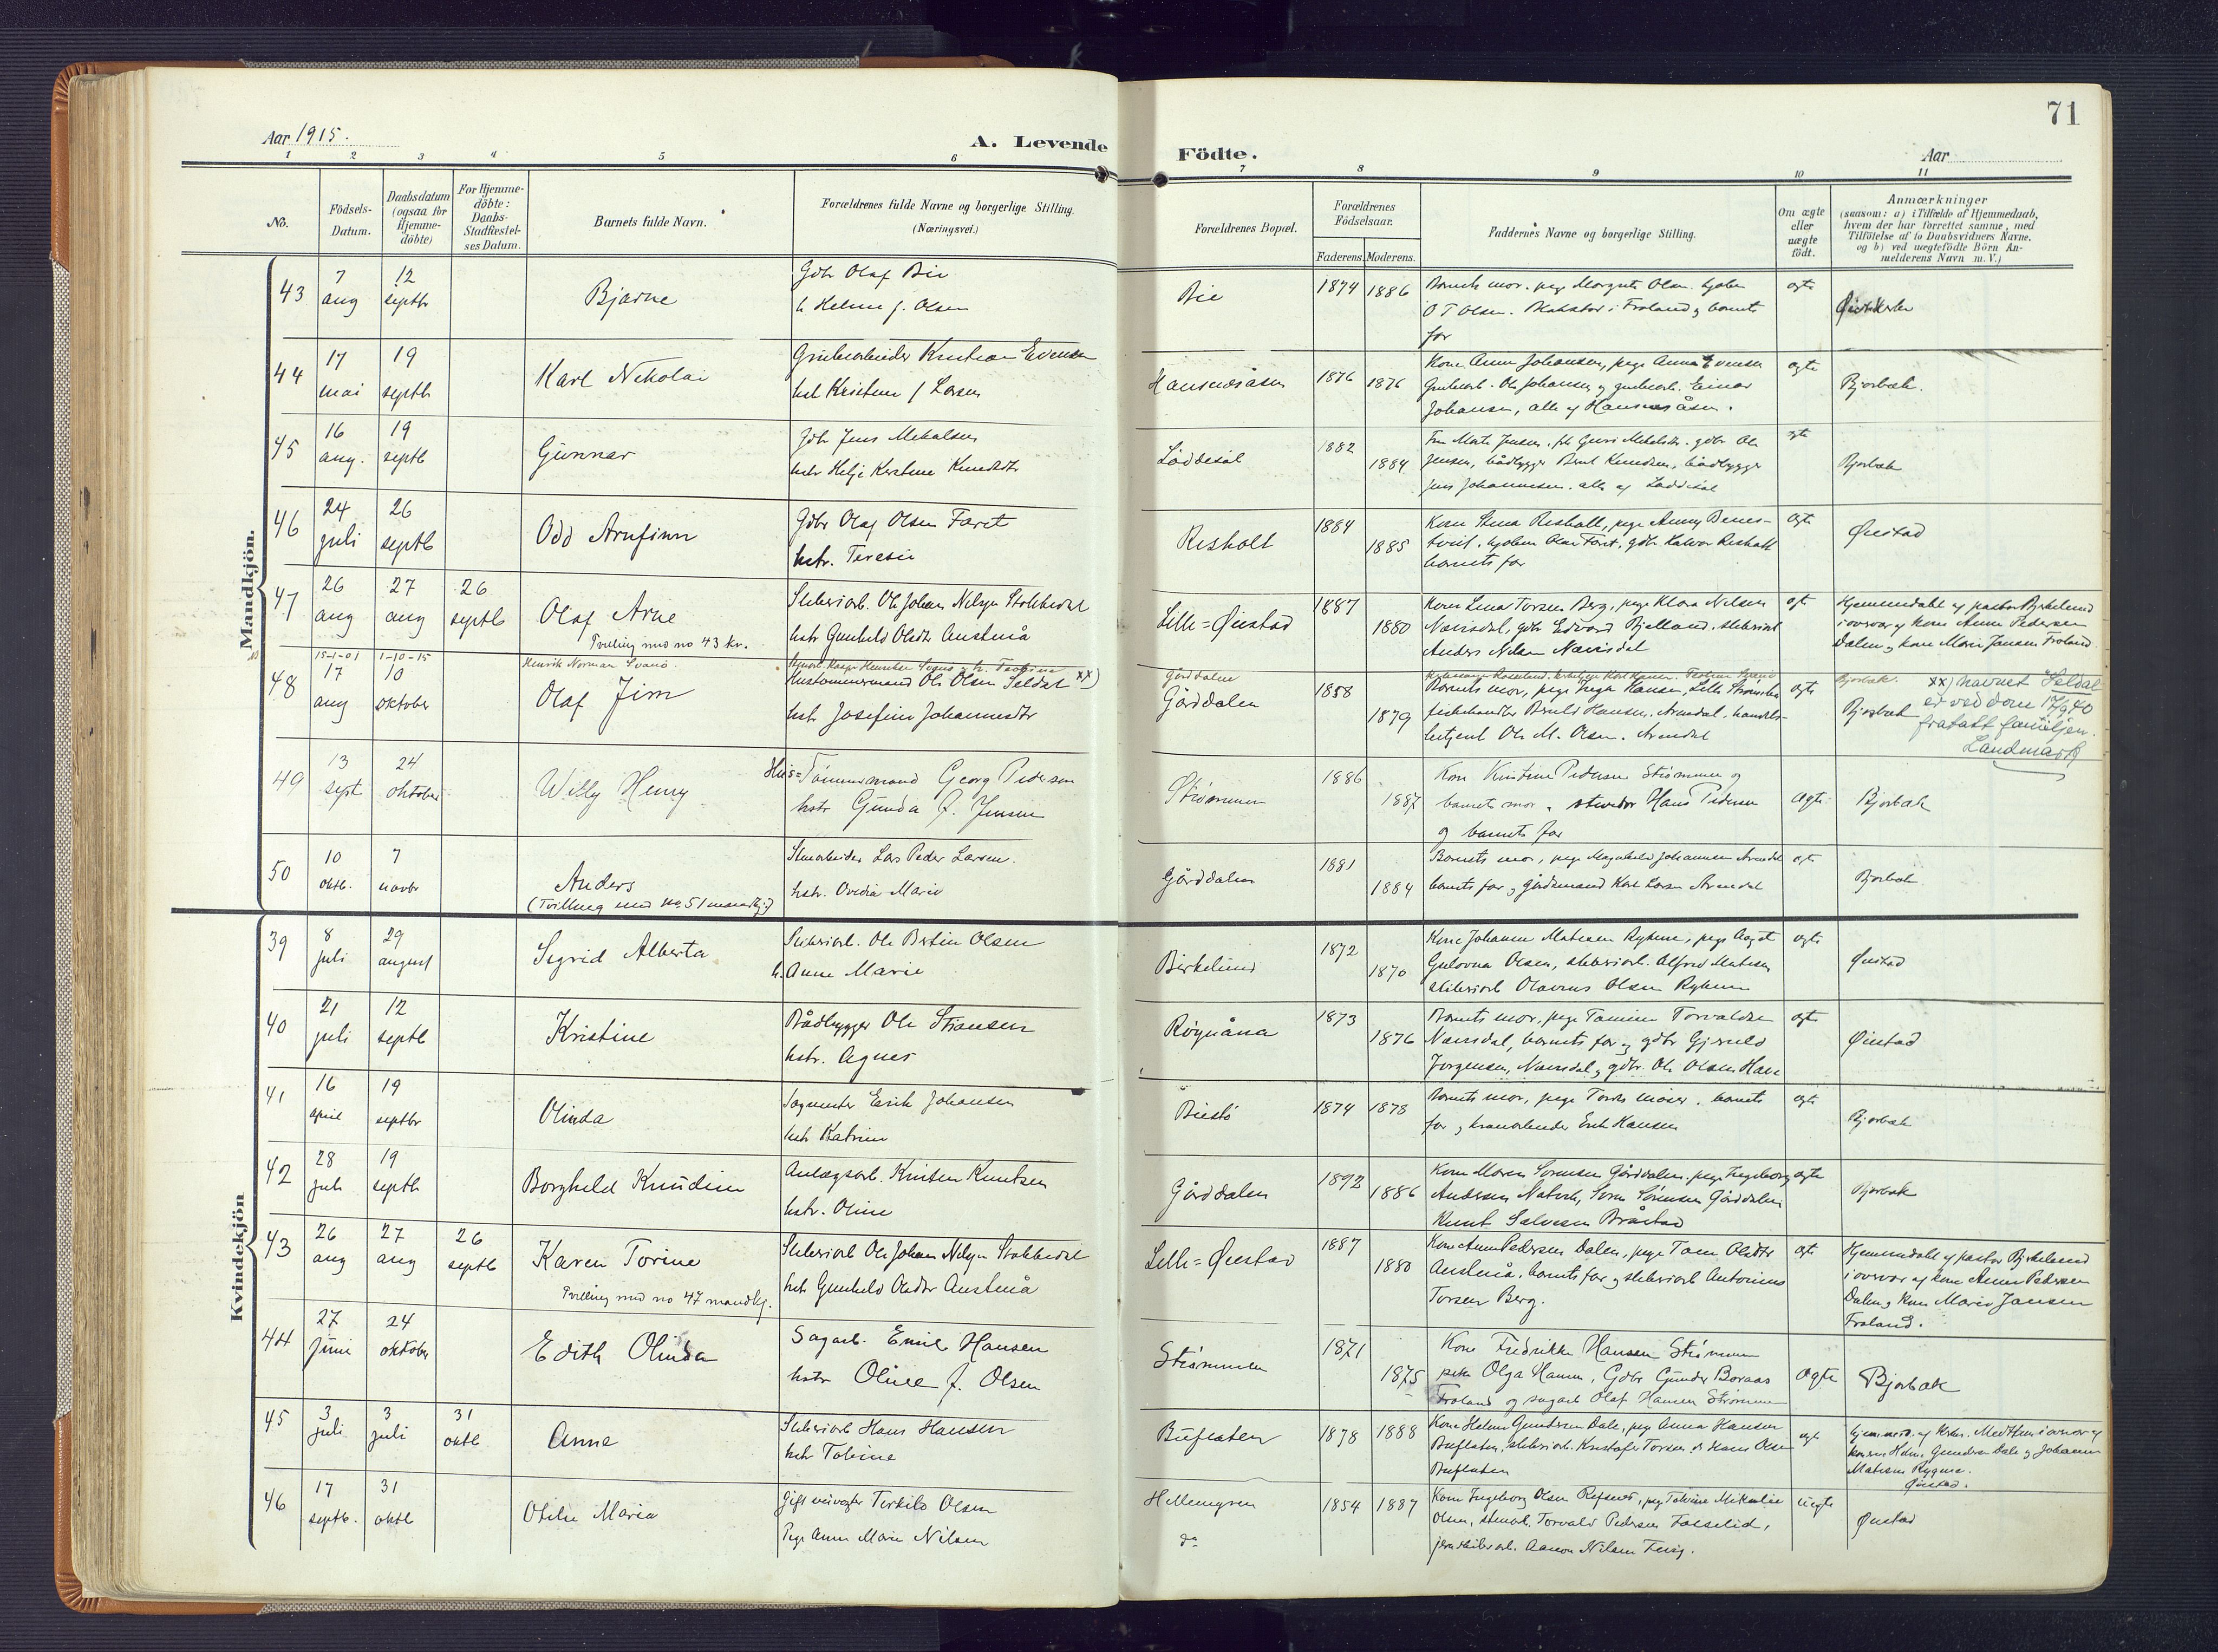 71
Aar 1915.
A. Levende Födte.
Aar
1 2 3 4 5 6 7 8 9 10 11
No.
Födsels-Datum.
Daabsdatum (ogsaa for Hjemme-döbte)
For Hjemme-döbte: Daabs-Stadfæstel-ses Datum.
Barnets fulde Navn.
Forældrenes fulde Navne og borgerlige Stilling.
(Næringsvei.)
Forældrenes Bopæl.
Forældrenes Födselsaar.
Faderens. Moderens.
Faddernes Navne og borgerlige Stilling.
Om ægte eller uægte födt.
Anmærkninger
(saasom: a) i Tilfælde af Hjemmedaab,
hvem der har forrettet samme, med
Tilföielse af to Daabsvidners Navne,
og b) ved uægtefödte Börn An-
melderens Navn m. V.)
Mandkjön.
43 7 aug 12 septbr Bjarne
Gdbr Olaf Bie
h. Helene f. Olsen
Bie 1874 1886
Barnets mor, pige Margit Olsen
O T Olsen. i Froland og barnets
far
ægte
44 17 mai 19 septb Karl Nikolai
Grubearbeider Kristian Evensen
hst Kristine f Larsen
Hansnesåsen 1876 1876
Kone Anne Johansen, pige Anna Evensen
Grubearb. Ole Johansen og grubearb. Einar
Johansen, alle af Hansnesåsen.
ægte Bjorbæk.
45 16 aug. 19 septb Gunnar
Gdb Jens Mikalsen
hstr Helje Kirstine Knudsdtr
Løddesøl 1882 1884
Jensen, bådbygger Bernt Knudsen, bådbygger
Jens Johannessen. alle af Løddesøl
ægte Bjorbæk
46 24 juli 26 septb Odd Arnfinn
Gdbr Olaf Olsen Faret
hstr. Teresie
Risholt 1884 1885
Kone Stina Risholt, pige Anny Benes-
tveit, Olav Faret, gdb Halvor Risholt
barnets far
ægte Øiestad
47 26 aug 27 aug 26 septb Olaf Arne
Tvilling med no 43 kv.
Sliberiarb. Ole Johan Nilsen Stokkedal
hstr Gunhild Olsdtr Austenå
Lille=Øiestad 1887 1880
Kone Lina Torsen Berg, pige Klara Nilsen
Næsdal, gdb Edvard Bjelland, sliberiarb
Anders Nilsen Næsdal
ægte
Hjemmedøbt af pastor Byrkelund
i overvær af kone Anne Pedersen
Dalen og kone Marie Jansen Froland
15-1-01 1-10-15 Henrik Norman Svanø
48 17 aug 10 oktober Olaf Jim
Kustømmermand Ole Olsen Seldal xx)
hst Josefine Johannesdtr
Gårddalen
Gårddalen 1858 1879
Barnets mor, pige Inga Hansen, Lille Strømsbu
fiskehandler Hansen, Arendal, handels-
betjent Ole M. Olsen, Arendal
ægte
Bjorbæk.
Bjorbæk
xx) navnet Seldal
er ved dom 17/9 40
fratatt familjen.
Landmark
49 13 sept 24 oktober Willy Henry
Hus=Tømmermand Georg Pedersen
hstr Gunda f. Jensen
Strømmen 1886 1887
Kone Kristine Pedersen Strømmen og
barnets mor, Hans Pedersen
og barnets far
ægte Bjorbæk
50 10 oktb. 7 novbr Anders
(Tvilling med no 51 mandkj.)
Stenarbeider Lars Peder Larsen.
hstr. Ovedia Marie
Gårddalen 1881 1884
Barnets mor, pige Magnhild Johannessen Arendal
barnets far og gårdsmand Karl Larsen Arendal
ægte Bjorbæk
Kvindekjön
39 8 juli 29 august Sigrid Alberta
Sliberiarb. Ole Bertin Olsen
h. Anne Marie
Birkelund 1872 1870
Kone Johanne Matisen Rykene, pige Aagot
Gulovna Olsen, sliberiarb. Alfred Matisen
sliberiarb Olavus Olsen Rykene
ægte Øiestad
40 21 juli 12 septb Kristine
Bådbygger Ole Stiansen
hstr. Agnes
Røynåna 1873 1876
Barnets mor, pige Tomine Torvaldsen
Næsdal, barnets far og gdbr Gjeruld
Jørgensen, Næsdal og gdbr. Ole Olsen
ægte Øiestad
41 16 april 19 septbr Olinda
Sagmester Erik Johansen
hstr Katrine
Biestø 1874 1878
Barnets mor, pige barnets
far og Erik Hansen
ægte Bjorbæk
42 28 juli 19 septb Borghild Knudine
Anlægsarb. Knut Knutsen
hstr. Oline
Gårddalen 1892 1886
Kone Maren Sørensen Gårddalen, pige Ingeborg
Andersen Natvik, Søren Sørensen Gårddalen
Knut Salvesen Bråstad
ægte Bjorbæk
43 26 aug 27 aug 26 septb Karen Torine
Tvilling med no 47 mandkj.
Sliberiarb Ole Johan Nilsen Stokkedal
hstr Gunhild Olsdtr Austenå
Lille=Øiestad 1887 1880
Kone Anne Pedersen Dalen, pige Olsdtr
Austenå, barnets far og sliberiarb Antonius
Torsen Berg.
ægte
Hjemmedøbt af pastor Byrkelund
i overvær af kone Anne Pedersen
Dalen og kone Marie Jansen
Froland.
44 27 juni 24 oktober Edith Olinda
Sagarb. Emil Hansen
hstr Oline f. Olsen
Strømmen 1871 1875
Kone Fredrikke Hansen Strømmen
pike Olga Hansen, Gdbr Gunder Boraas
Froland og sagarb Olaf Hansen Strømmen
Ægte Bjorbæk
45 3 juli 3 juli 31 oktb Anne
Sliberiarb Hans Hansen
hstr Tobine
Buflaten 1878 1888
Kone Helene Gundersen Dale, pige Anna Hansen
Buflaten, sliberiarb. Kristofer Torsen, Hans Olsen
Buflaten
ægte
Gundersen Dale og Johanne
Matisen Rygene.
Øiestad.
46 17 septb. 31 oktb Otilie Marie
Gift Terkild Olsen
Pige Anne Marie Nilsen
Hellemyren
do
1854 1887
Kone Ingeborg Olsen Refsnes, pige Tobine Mikaline
Olsen, stenarb. Torvald Pedersen Fosselid,
Aanon Nilsen
uægte Øiestad